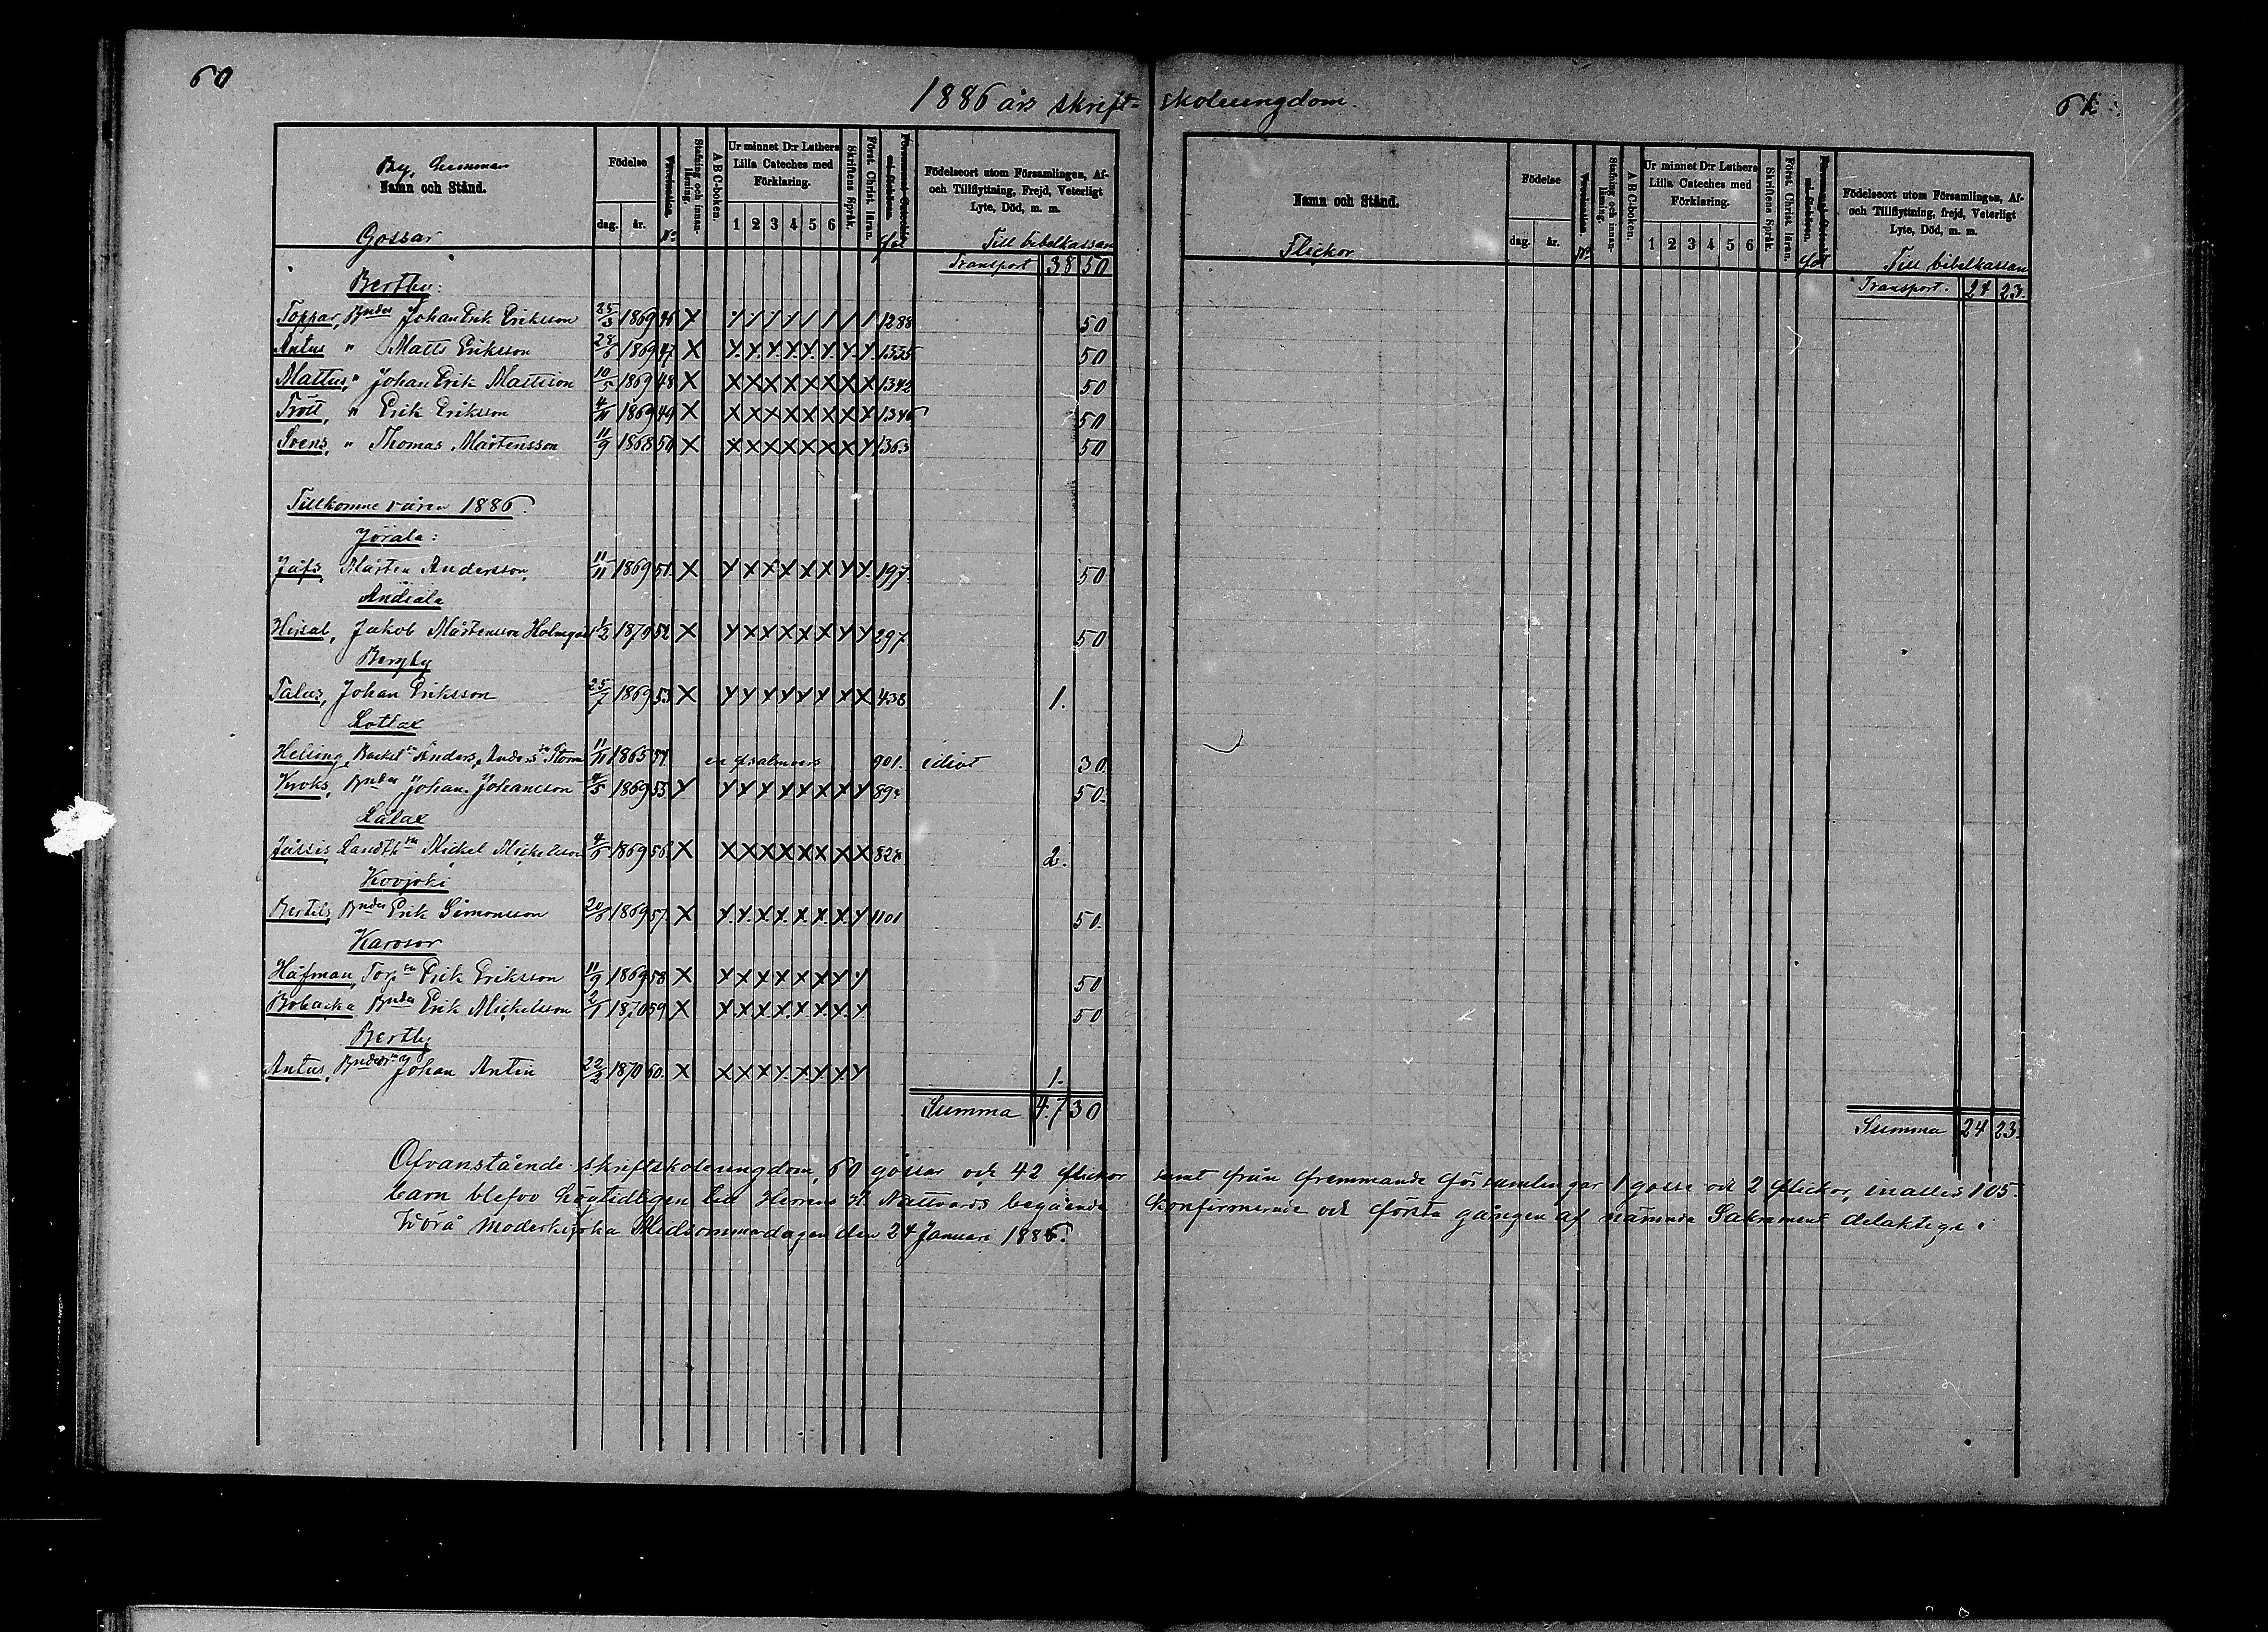 60
1886 års skrift-skoleungdom.
61
By, hemman
Namn och Stånd.
Gossar
Födelse
dag. år.
Vaccination.
No
Stafning och innanläsning.
A B C-boken.
Ur minnet D:r Luthers
Lilla Cateches med
Förklaring.
1 2 3 4 5 6
Skriftens Språk.
Först. Christ. läran.
fol
Födelseort utom Församlingen, Af-
och Tillflyttning, Frejd, Veterligt
Lyte, Död, m. m.
Till bibelkassan
Transport 38 50
Bertby:
Toppar, Bndes Johan Erik Eriksson 25/3 1869 46 X / / / / / / / / 1288 50
Antus " Matts Eriksson 28/6 1869 47. X X X X X X X X X 1335 50
Mattus, " Johan Erik Mattsson 10/5 1869 48 X X X X X X X X X 1342 50
Tröit, " Erik Eriksson 4/11 1869 49 X X X X X X X X X 1346 50
Svens, " Thomas Mårtensson 11/9 1868 50 X X X X X X X X X 1363 50
Tillkomne våren 1886.
Jörala:
Jåfs, Mårten Andersson, 11/11 1869 51. X X X X X X X X X 197. 50
Andiala
Hissal, Jakob Mårtensson Holmqvist 1/2 1870 52 X X X X X X X X X 297 50
Bergby
Talus, Johan Eriksson 25/7 1869 53 X X X X X X X X X 438 1.
Lotlax
Helsing, Backst:sn Anders Anders:sn Storm 11/11 1865 54. en psalmvers 901. idiot 30
Kroks, Bndes Johan Johansson 4/5 1869 55 X X X X X X X X X 894 50.
Lålax
Jåssis Landth:sn Mickel Mickelsson 4/6 1869 56. X X X X X X X X X 824 2.
Kovjoki
Bertils, Bndes Erik Simonsson 20/6 1869 57. X X X X X X X X X 1101 50.
Karvsor
Håfman, Torp:sn Erik Eriksson 11/9 1869 58 X X X X X X X X X 50
Bobacka Bndes Erik Mickelsson 2/1 1870 59. X X X X X X X X X 50
Bertby
Antus, Bndes Johan Antin 22/2 1870 60. X X X X X X X X X 1.
Summa 47 30
Namn och Stånd.
Flickor
Födelse
dag. år.
Vaccination.
No
Stafning och innanläsning.
A B C-boken.
Ur minnet D:r Luthers
Lilla Cateches med
Förklaring.
1 2 3 4 5 6
Skriftens Språk.
Först. Christ. läran.
fol
Födelseort utom Församlingen, Af-
och Tillflyttning, frejd, Veterligt
Lyte, Död, m. m.
Till bibelkassan
Transport. 24 23.
Summa 24 23.
Ofvanstående skriftskoleungdom, 60 gossar och 42 flickor samt från fremmande församlingar 1 gosse och 2 flickor, inalles 105.
barn blefvo högtidligen till Herrens H. Nattvards begående konfirmerade och första gången af nämnda Sakrament delaktiga i
Wörå moderkyrka Midsommardagen den 24 Januari 1886.